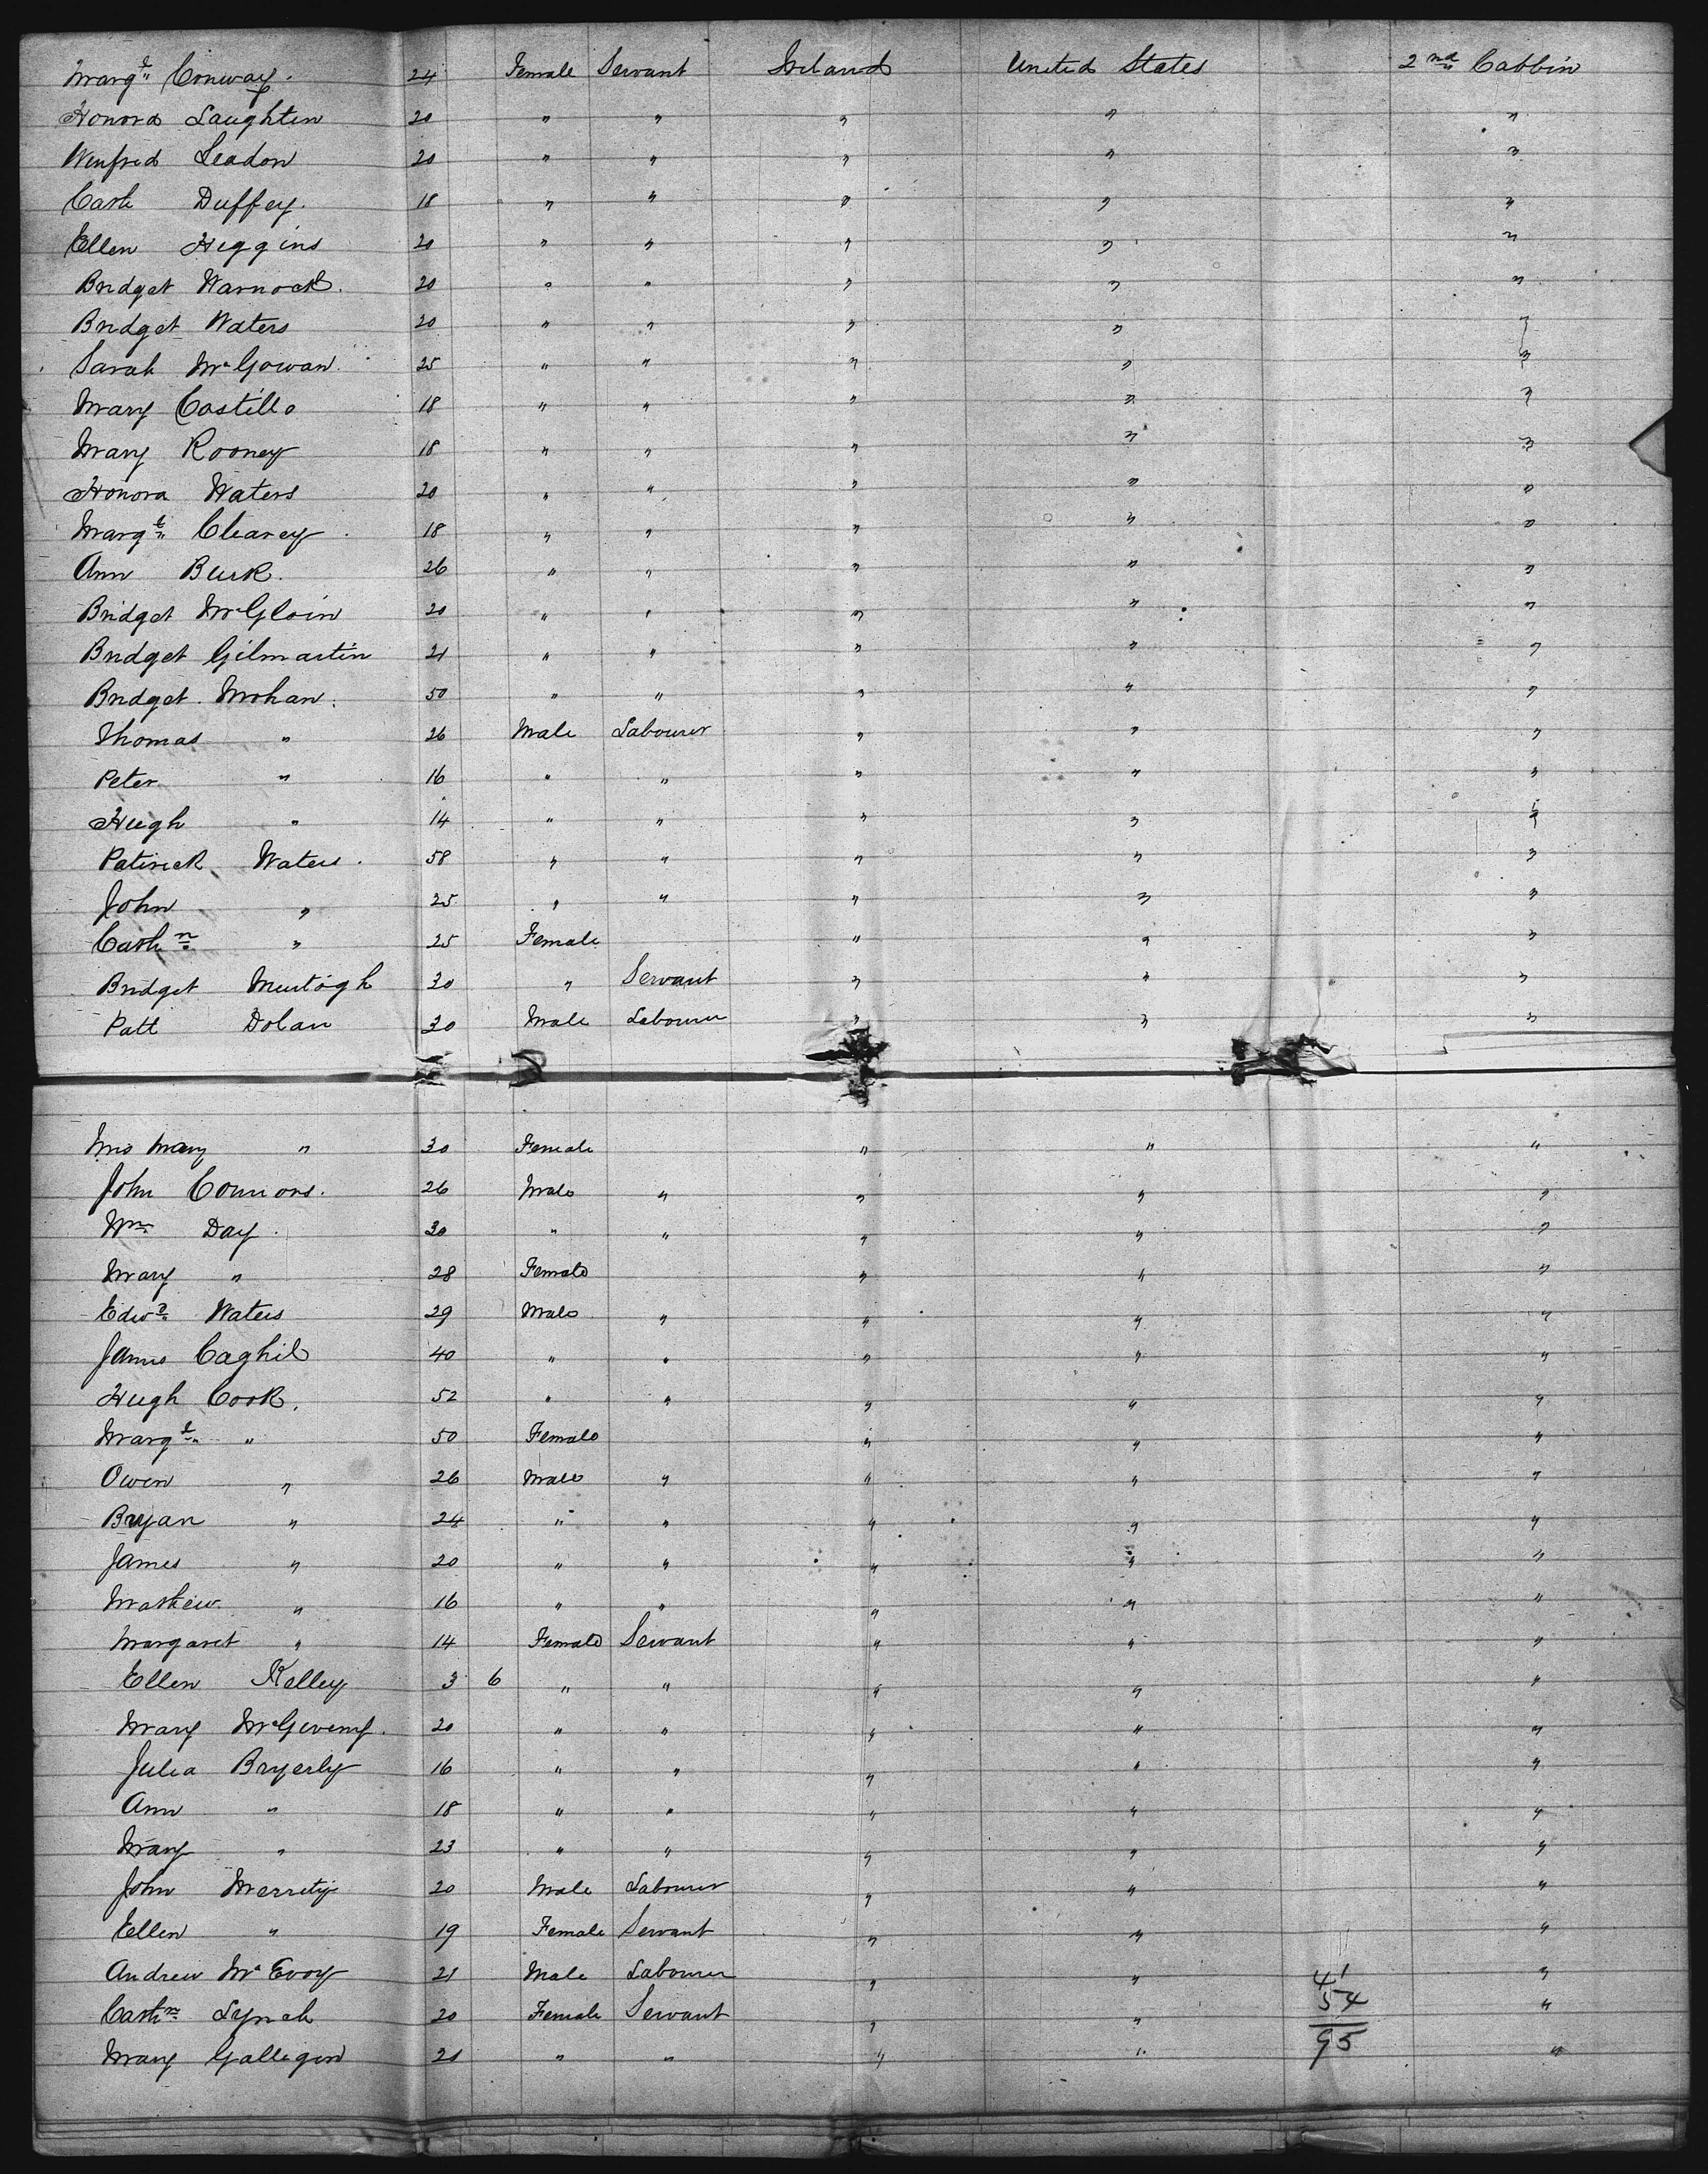 Margt Conway. 24 Female Servant Ireland United States 2nd Cabbin
Honora Laughtin 20 " " " " "
Winfred Leadon 20 " " " " "
Cath Duffey. 18 " " " " "
Ellen Higgins 20 " " " " "
Bridget Warnock. 20 " " " " "
Bridget Waters 20 " " " " "
Sarah McGowan. 25 " " " " "
Mary Costillo 18 " " " " "
Mary Rooney 18 " " " " "
Honora Waters 20 " " " " "
Margt Clearey 18 " " " " "
Ann Burk. 26 " " " " "
Bridget McGloin 20 " " " " "
Bridget Gilmartin 21 " " " " "
Bridget Mohan. 50 " " " " "
Thomas " 26 Male Labourer " " "
Peter " 16 " " " " "
Hugh " 14 " " " " "
Patirick Waters. 58 " " " " "
John " 25 " " " " "
Cathn " 25 Female " " "
Bridget Murtogh 30 " Servant " " "
Patt Dolan 30 Male Labourer " " "
Mrs Mary " 30 Female " " "
John Connors. 26 Male " " " "
Wm Day. 30 " " " " "
Mary " 28 Female " " "
Edwd Waters 29 Male " " " "
James Caghil 40 " " " " "
Hugh Cook. 52 " " " " "
Margt " 50 Female " " "
Owen " 26 Male " " " "
Bryan " 24 " " " " "
James " 20 " " " " "
Mathew " 16 " " " " "
Margaret " 14 Female Servant " " "
Ellen Kelley 3 6 " " " " "
Mary McGiveny. 20 " " " " "
Julia Bryerly 16 " " " " "
Ann " 18 " " " " "
Mary " 23 " " " " "
John Merrity 20 Male Labourer " " "
Ellen " 19 Female Servant " " "
Andrew McEvoy 21 Male Labourer " " 41 "
Cathn Lynch 20 Female Servant " " 54 "
Mary Gallegon 20 " " " " 95 "